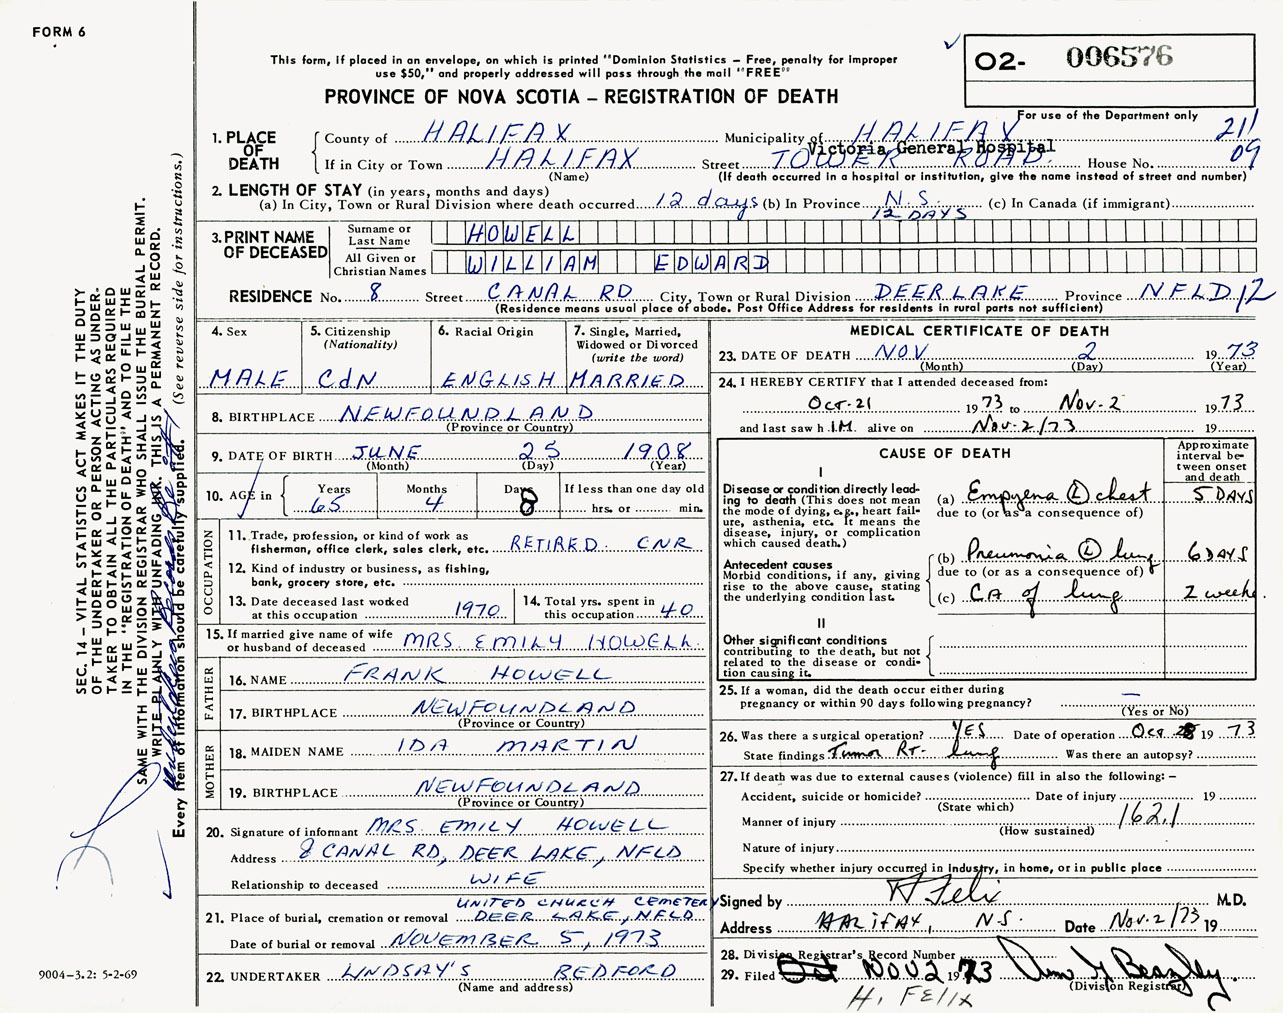 FORM 6
This form, if placed in an envelope, on which is printed "Dominion Statistics – Free, penalty for improper
use $50," and properly addressed will pass through the mail "FREE"
O2- 006576
PROVINCE OF NOVA SCOTIA – REGISTRATION OF DEATH
For use of the Department only
1. PLACE OF DEATH County of HALIFAX Municipality of HALIFAX 211
Victoria General Hospital
If in City or Town HALIFAX Street TOWER ROAD House No. 09
(Name) (If death occurred in a hospital or institution, give the name instead of street and number)
2. LENGTH OF STAY (in years, months and days)
(a) In City, Town or Rural Division where death occurred 12 days (b) In Province N.S. 12 DAYS (c) In Canada (if immigrant)
3. PRINT NAME OF DECEASED Surname or Last Name HOWELL
All Given or Christian Names WILLIAM EDWARD
RESIDENCE No. 8 Street CANAL RD City, Town or Rural Division DEER LAKE Province NFLD 12
(Residence means usual place of abode. Post Office Address for residents in rural parts not sufficient)
4. Sex
MALE
5. Citizenship
(Nationality)
CdN
6. Racial Origin
ENGLISH
7. Single, Married,
Widowed or Divorced
(write the word)
MARRIED
8. BIRTHPLACE NEWFOUNDLAND
(Province or Country)
9. DATE OF BIRTH JUNE 25 1908
(Month) (Day) (Year)
10. AGE in Years Months Days If less than one day old
65 4 8 hrs. or min.
OCCUPATION
11. Trade, profession, or kind of work as
fisherman, office clerk, sales clerk, etc. RETIRED CNR
12. Kind of industry or business, as fishing,
bank, grocery store, etc.
13. Date deceased last worked
at this occupation 1970
14. Total yrs. spent in
this occupation 40
15. If married give name of wife
or husband of deceased MRS. EMILY HOWELL
FATHER
16. NAME FRANK HOWELL
17. BIRTHPLACE NEWFOUNDLAND
(Province or Country)
MOTHER
18. MAIDEN NAME IDA MARTIN
19. BIRTHPLACE NEWFOUNDLAND
(Province or Country)
20. Signature of informant MRS. EMILY HOWELL
Address 8 CANAL RD, DEER LAKE, NFLD
Relationship to deceased WIFE
UNITED CHURCH CEMETERY
21. Place of burial, cremation or removal DEER LAKE, NFLD
Date of burial or removal NOVEMBER 5, 1973
22. UNDERTAKER LINDSAY'S BEDFORD
(Name and address)
MEDICAL CERTIFICATE OF DEATH
23. DATE OF DEATH NOV 2 1973
(Month) (Day) (Year)
24. I HEREBY CERTIFY that I attended deceased from:
Oct-21 1973 to Nov-2 1973
and last saw h IM alive on Nov-2/73 19
CAUSE OF DEATH
Approximate
interval be-
tween onset
and death
I
Disease or condition directly lead-
ing to death (This does not mean
the mode of dying, e.g., heart fail-
ure, asthenia, etc. It means the
disease, injury, or complication
which caused death.)
(a) Empyema (L) chest 5 DAYS
due to (or as a consequence of)
Antecedent causes
Morbid conditions, if any, giving
rise to the above cause, stating
the underlying condition last.
(b) Pneumonia (L) lung 6 DAYS
due to (or as a consequence of)
(c) CA of lung 2 weeks
II
Other significant conditions
contributing to the death, but not
related to the disease or condi-
tion causing it.
25. If a woman, did the death occur either during
pregnancy or within 90 days following pregnancy? —
(Yes or No)
26. Was there a surgical operation? YES Date of operation Oct 1973
State findings Tumor Rt. lung Was there an autopsy?
27. If death was due to external causes (violence) fill in also the following: –
Accident, suicide or homicide? Date of injury 19
(State which)
Manner of injury 162.1
(How sustained)
Nature of injury
Specify whether injury occurred in industry, in home, or in public place
Signed by H Felix M.D.
Address HALIFAX, N.S. Date Nov-2/73 19
28. Division Registrar's Record Number
29. Filed NOV 2 1973
(Division Registrar)
H. FELIX
SEC. 14 – VITAL STATISTICS ACT MAKES IT THE DUTY
OF THE UNDERTAKER OR PERSON ACTING AS UNDER-
TAKER TO OBTAIN ALL THE PARTICULARS REQUIRED
IN THE "REGISTRATION OF DEATH" AND TO FILE THE
SAME WITH THE DIVISION REGISTRAR WHO SHALL ISSUE THE BURIAL PERMIT.
WRITE PLAINLY WITH UNFADING INK. THIS IS A PERMANENT RECORD.
Every item of information should be carefully supplied. (See reverse side for instructions.)
9004-3.2: 5-2-69